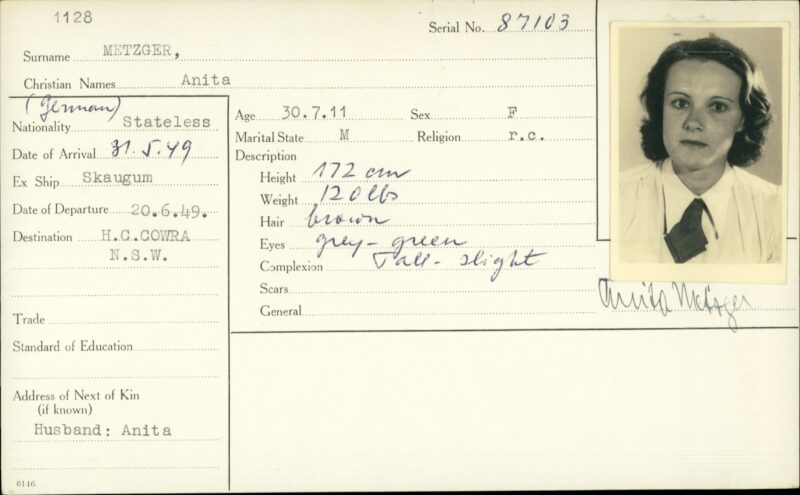 1128
Serial No. 87103
Surname METZGER,
Christian Names Anita
(German)
Nationality Stateless
Date of Arrival 31.5.49
Ex Ship Skaugum
Date of Departure 20.6.49.
Destination H.C.COWRA
N.S.W.
Trade
Standard of Education
Address of Next of Kin
(if known)
Husband: Anita
6146.
Age 30.7.11 Sex F
Marital State M Religion r.c.
Description
Height 172 cm
Weight 120 lbs
Hair brown
Eyes grey-green
Complexion Tall-slight
Scars
General
Anita Metzger